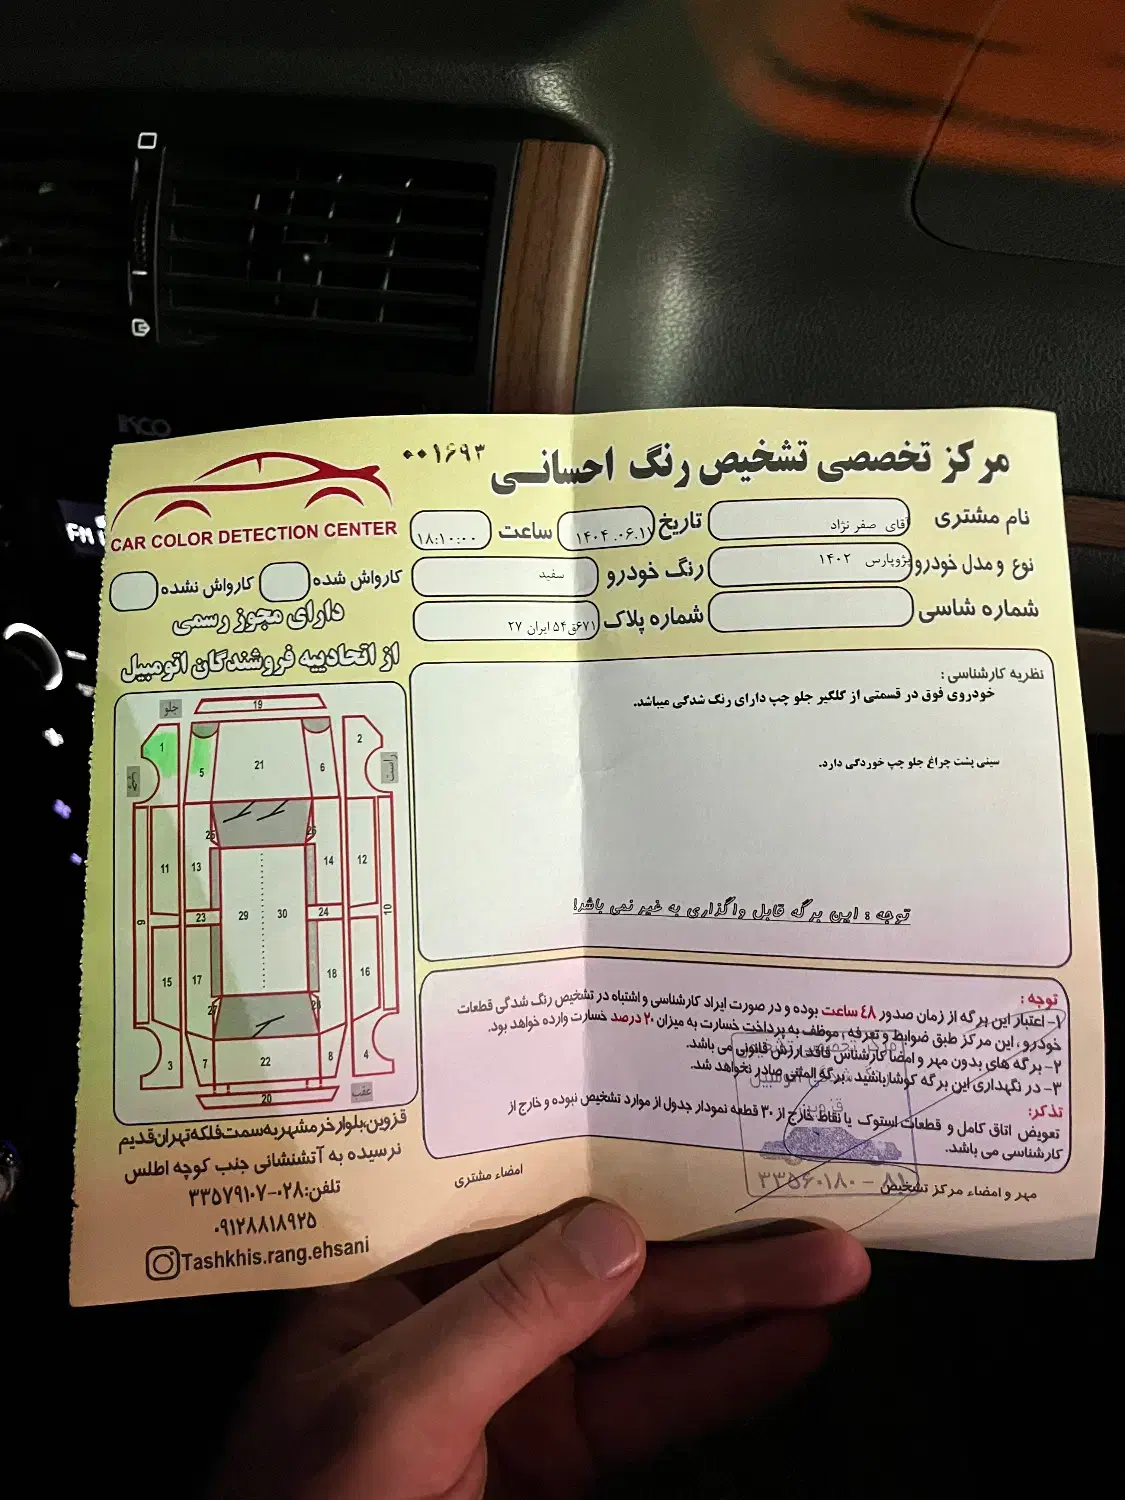 IKCO
FM
مرکز تخصصی تشخیص رنگ احسانی
۰۰۱۶۹۳
CAR COLOR DETECTION CENTER
نام مشتری آقای صفر نژاد تاریخ ۱۴۰۴.۰۶.۱۱ ساعت ۱۸:۱۰:۰۰
نوع و مدل خودرو پژوپارس ۱۴۰۲ رنگ خودرو سفید
شماره شاسی شماره پلاک ۶۷۱ق۵۴ ایران ۲۷
کارواش شده کارواش نشده
دارای مجوز رسمی
از اتحادییه فروشندگان اتومبیل
نظریه کارشناسی :
خودروی فوق در قسمتی از گلگیر جلو چپ دارای رنگ شدگی میباشد.
سینی پشت چراغ جلو چپ خوردگی دارد.
توجه : این برگه قابل واگذاری به غیر نمی باشد!
جلو
19
1 2
5 21 6
راست
25 26
11 13 14 12
9 23 29 30 24 10
15 17 18 16
27 28
3 7 22 8 4
20
عقب
توجه :
۱- اعتبار این برگه از زمان صدور ۴۸ ساعت بوده و در صورت ایراد کارشناسی و اشتباه در تشخیص رنگ شدگی قطعات
خودرو ، این مرکز طبق ضوابط و تعرفه ، موظف به پرداخت خسارت به میزان ۲۰ درصد خسارت وارده خواهد بود.
۲- برگه های بدون مهر و امضا کارشناس فاقد ارزش قانونی می باشد.
۳- در نگهداری این برگه کوشا باشید ، برگه المثنی صادر نخواهد شد.
تذکر:
تعویض اتاق کامل و قطعات استوک یا نقاط خارج از ۳۰ قطعه نمودار جدول از موارد تشخیص نبوده و خارج از
کارشناسی می باشد.
مهر و امضاء مرکز تشخیص
امضاء مشتری
قزوین
۳۳۵۶۰۱۸۰ - ۸۱
قزوین،بلوار خرمشهر به سمت فلکه تهران قدیم
نرسیده به آتشنشانی جنب کوچه اطلس
تلفن:۰۲۸-۳۳۵۷۹۱۰۷
۰۹۱۲۸۸۱۸۹۲۵
Tashkhis.rang.ehsani